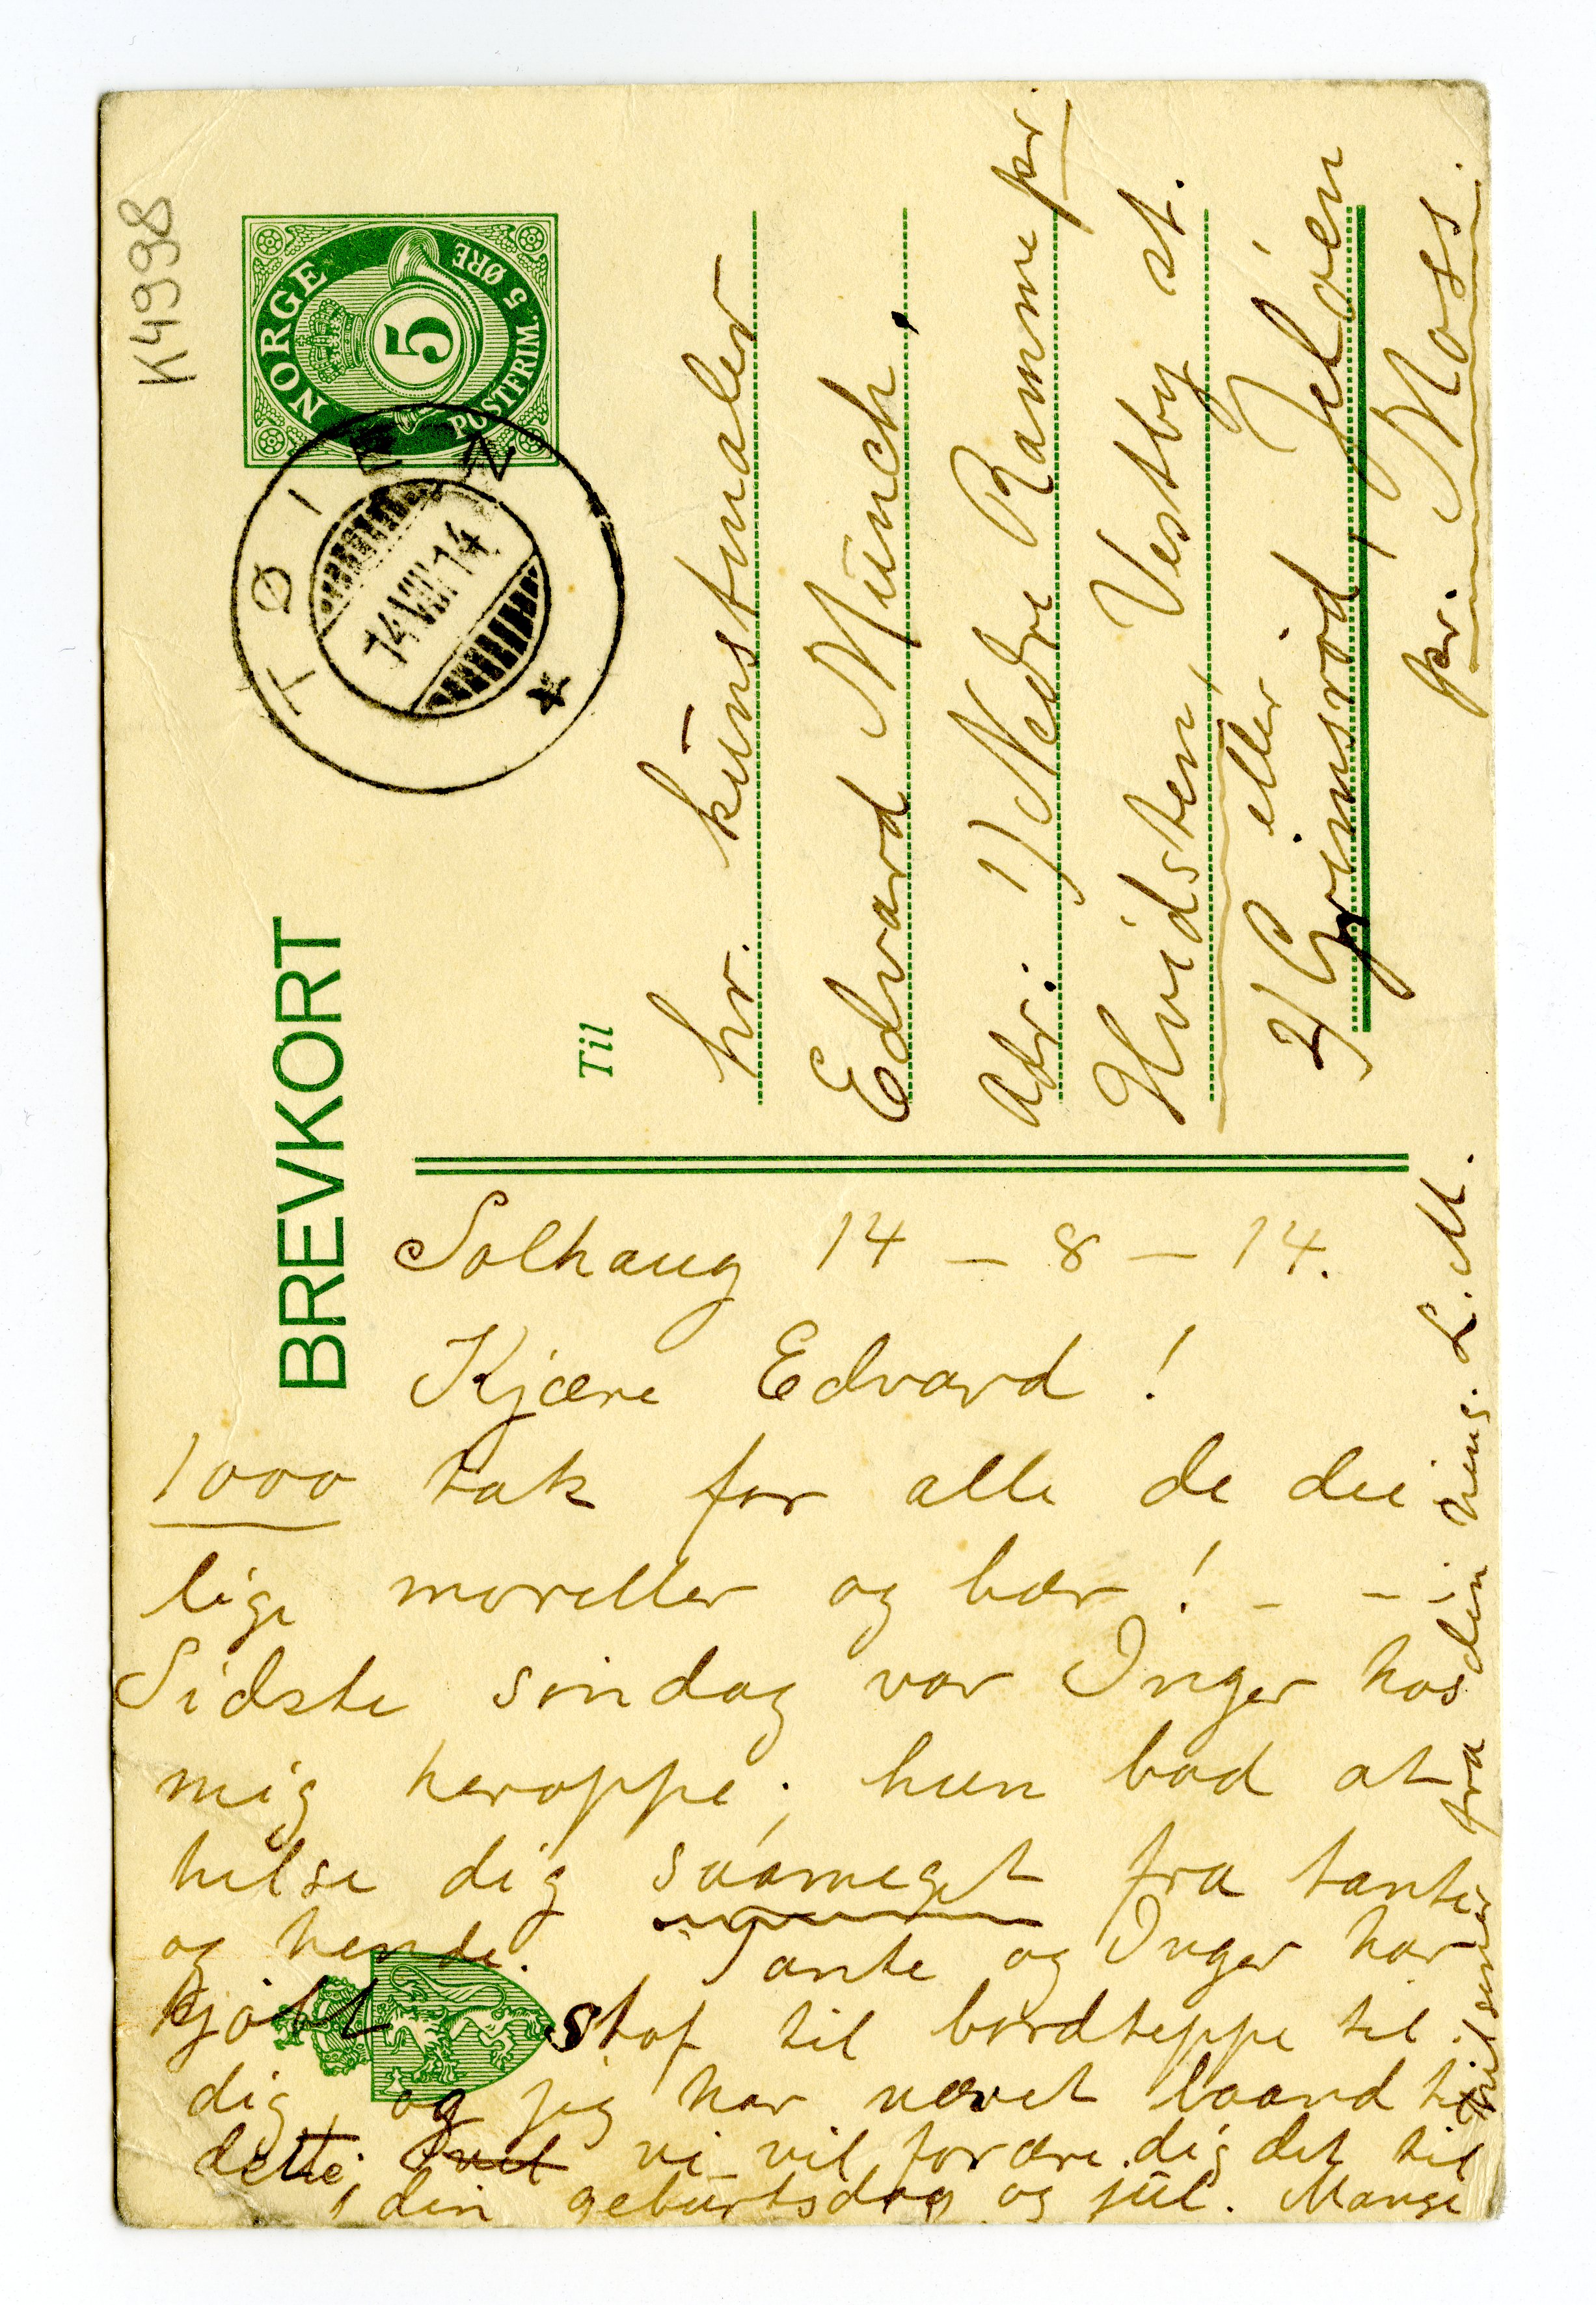 K4998
NORGE
5
POSTFRIM. 5 ØRE
TØIEN
14 VIII 14
BREVKORT
Til
hr. kunstmaler
Edvard Munch.
Adr: 1) Nedre Ramme pr.
Hvidsten, Vestby st.
eller
2) Grimsrød, Jeløen
pr. Moss.
Solhaug 14 – 8 – 14.
Kjære Edvard!
1000 tak for alle de dei
lige moreller og bær! – –
Sidste søndag var Inger hos
mig heroppe; hun bad at
hilse dig saameget fra tante
og hende. Tante og Inger har
kjøbt stof til bordteppe til
dig, og jeg har vævet baand til
dette; vi vil forære dig det til
din geburtsdag og jul. Mange
hilsener
fra din heng. L. M.